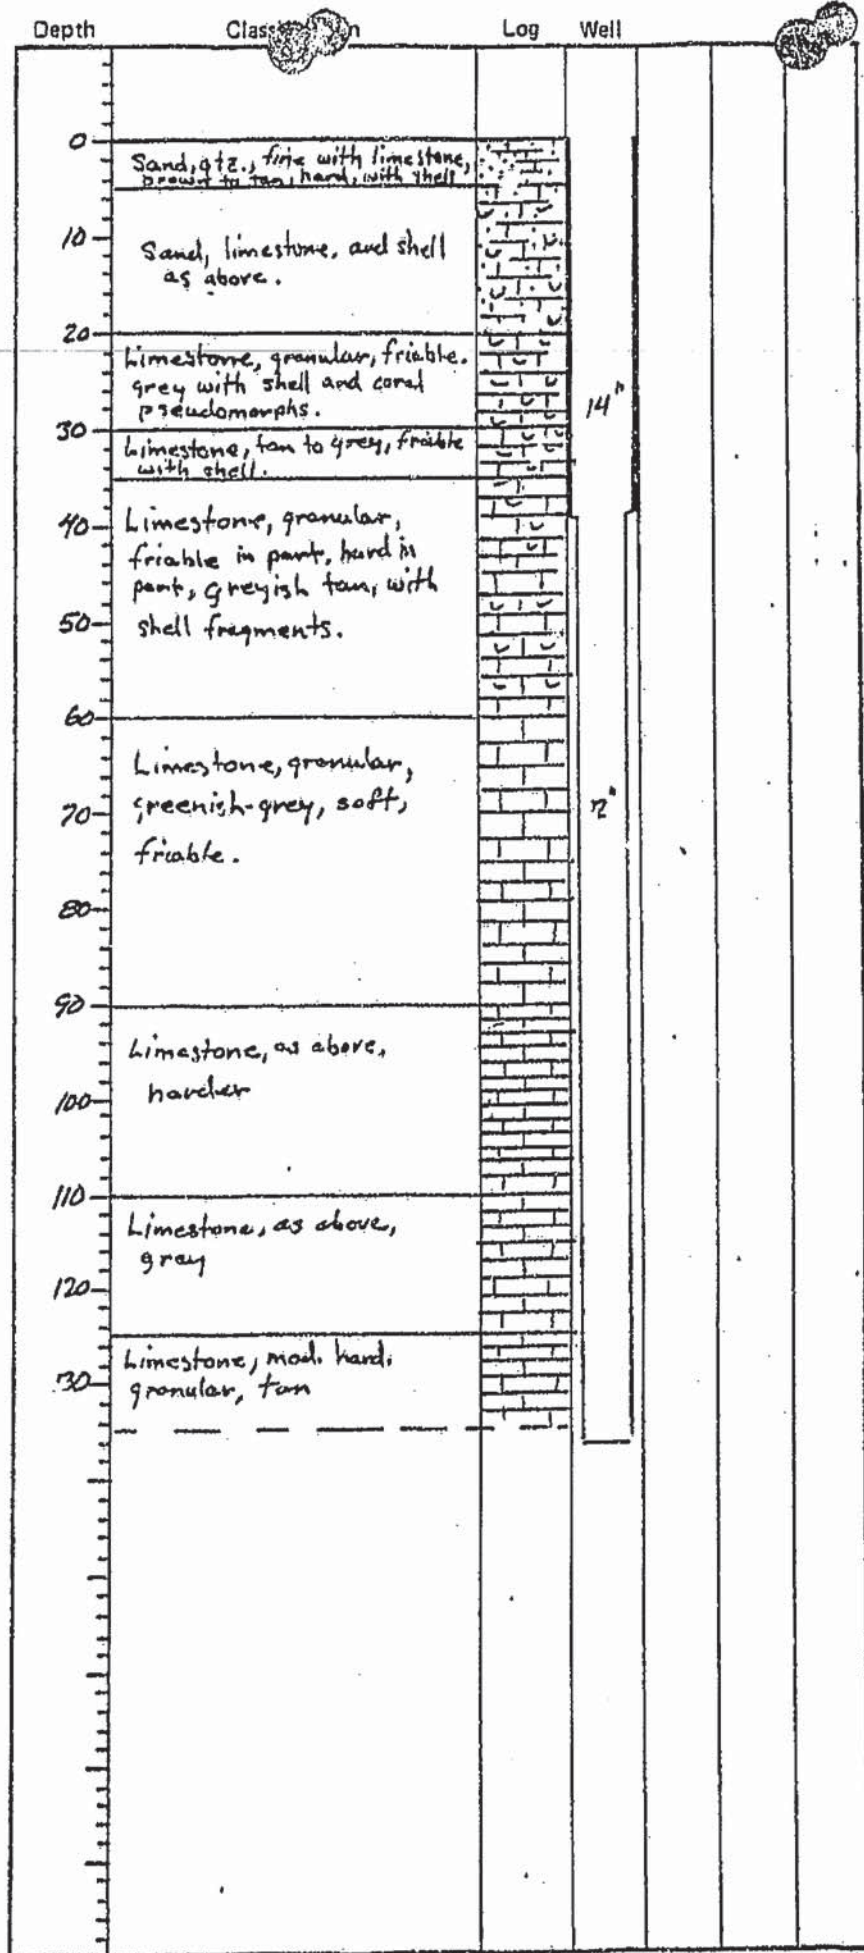 Depth Log Well
0
Sand, qtz., fine with limestone,
brown to tan, hard, with shell
10
Sand, limestone, and shell
as above.
20
Limestone, granular, friable.
grey with shell and coral
pseudomorphs.
14"
30
Limestone, tan to grey, friable
with shell.
40
Limestone, granular,
friable in part, hard in
part, greyish tan, with
50
shell fragments.
60
Limestone, granular,
greenish-grey, soft,
70
friable.
80
90
Limestone, as above,
harder
100
110
Limestone, as above,
gray
120
Limestone, mod. hard.
granular, tan